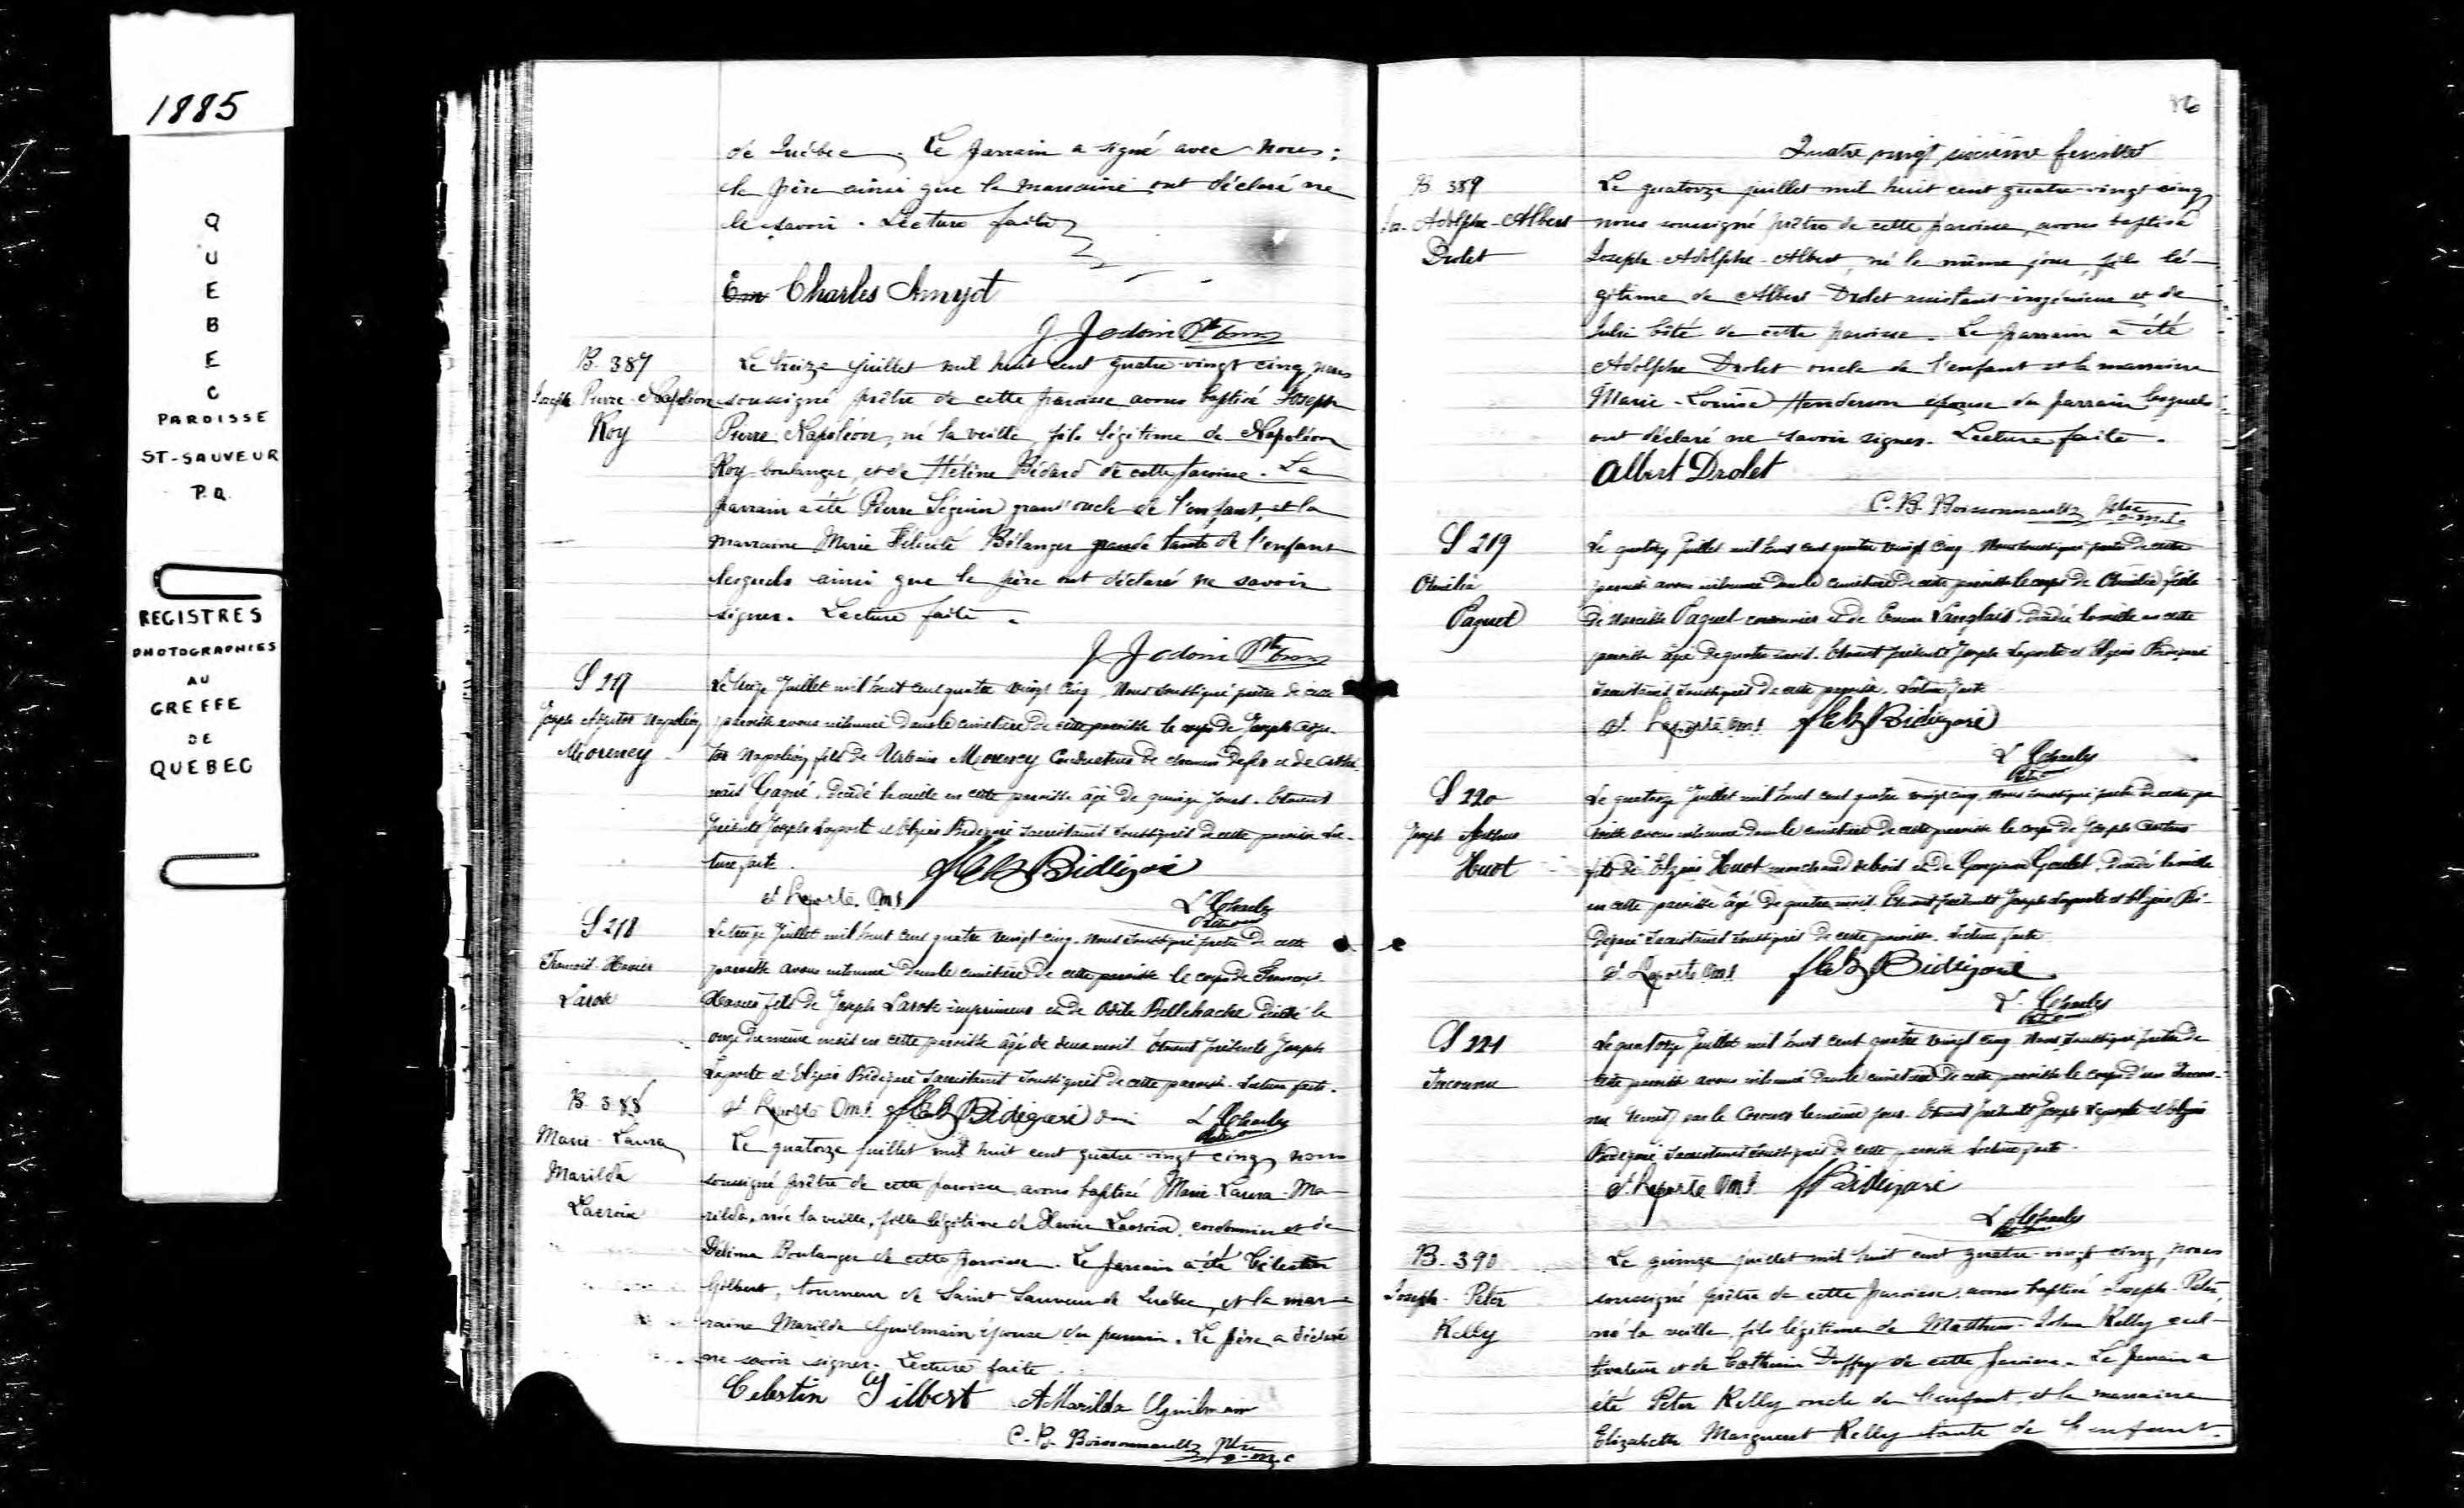 1885
QUEBEC
PAROISSE
ST-SAUVEUR
P.Q.
REGISTRES
PHOTOGRAPHIES
AU
GREFFE
DE
QUEBEC
de Québec. Le parrain a signé avec nous;
le père ainsi que la marraine ont déclaré ne
le savoir. Lecture faite
Charles Amyot
J. Jodoin Ptre
B. 387
Joseph Pierre Napoléon
Roy
Le treize juillet mil huit cent quatre-vingt cinq nous
soussigné prêtre de cette paroisse avons baptisé Joseph
Pierre Napoléon, né la veille, fils légitime de Napoléon
Roy boulanger, et de Hélène Bédard de cette paroisse. Le
parrain a été Pierre Séguin grand'oncle de l'enfant, et la
marraine Marie Félicité Bélanger grande tante de l'enfant
lesquels ainsi que le père ont déclaré ne savoir
signer. Lecture faite.
J Jodoin Ptre
S 217
Joseph Napoléon
Morency
Le treize Juillet mil huit cent quatre vingt cinq, Nous soussigné prêtre de cette
paroisse avons inhumé dans le cimetière de cette paroisse le corps de Joseph
Napoléon fils de Urbain Morency Conducteur de chemin de fer et de
Gagné, décédé la veille en cette paroisse âgé de quinze jours. Étaient
présents Joseph Laporte et Elzéar Bidégaré sacristains soussignés de cette paroisse Lec-
ture faite.
Bidégaré
Laporte
S 218
François-Xavier
Larose
Le treize Juillet mil huit cent quatre vingt-cinq. Nous soussigné prêtre de cette
paroisse avons inhumé dans le cimetière de cette paroisse le corps de François
Xavier fils de Joseph Larose imprimeur et de Odile Bellehache décédé le
onze du même mois en cette paroisse âgé de deux mois. Étaient présents Joseph
Laporte et Elzéar Bidégaré sacristains soussignés de cette paroisse. Lecture faite.
Laporte Bidégaré
B. 388
Marie-Laura
Marilda
Lacroix
Le quatorze juillet mil huit cent quatre-vingt cinq nous
soussigné prêtre de cette paroisse, avons baptisé Marie-Laura-Ma-
rilda, née la veille, fille légitime de Xavier Lacroix, cordonnier et de
Délima Boulanger de cette paroisse. Le parrain a été Célestin
Gilbert, tourneur de Saint Sauveur de Québec, et la mar-
raine Marilda Guilmain épouse du parrain. Le père a déclaré
ne savoir signer. Lecture faite.
Celestin Gilbert Marilda Guilmain
C.-B. Boissonnault ptre
o.m.i.
86
Quatre vingt sixième feuillet
B 389
Jos. Adolphe-Albert
Drolet
Le quatorze juillet mil huit cent quatre-vingt cinq
nous soussigné prêtre de cette paroisse, avons baptisé
Joseph-Adolphe-Albert, né le même jour, fils lé-
gitime de Albert Drolet assistant-ingénieur et de
Julie Côté de cette paroisse. Le parrain a été
Adolphe Drolet oncle de l'enfant et la marraine
Marie-Louise Henderson épouse du parrain lesquels
ont déclaré ne savoir signer. Lecture faite.
Albert Drolet
C.B. Boissonnault ptre
o.m.i.
S 219
Paquet
Le quatorze Juillet mil huit cent quatre vingt cinq. Nous soussigné prêtre de cette
paroisse avons inhumé dans le cimetière de cette paroisse le corps de fille
de Narcisse Paquet cordonnier et de Emma Langlais, décédée la veille en cette
paroisse âgée de quatre mois. Étaient présents Joseph Laporte et Elzéar Bidégaré
sacristains soussignés de cette paroisse. Lecture faite
Laporte Bidégaré
S 220
Joseph Arthur
Huot
Le quatorze Juillet mil huit cent quatre vingt cinq, Nous soussigné prêtre de cette pa
roisse avons inhumé dans le cimetière de cette paroisse le corps de Joseph Arthur
fils de Elzéar Huot marchand de bois et de Goulet, décédé la veille
en cette paroisse âgé de quatre mois. Étaient présents Joseph Laporte et Elzéar Bi-
dégaré sacristains soussignés de cette paroisse. Lecture faite
Laporte Bidégaré
S 221
Inconnu
Le quatorze Juillet mil huit cent quatre vingt cinq Nous soussigné prêtre de
cette paroisse avons inhumé dans le cimetière de cette paroisse le corps d'un Incon-
nu par le Coroner le même jour. Étaient présents Joseph Laporte et Elzéar
Bidégaré sacristains soussignés de cette paroisse Lecture faite.
Laporte Bidégaré
B. 390
Joseph-Peter
Kelly
Le quinze juillet mil huit cent quatre-vingt cinq, nous
soussigné prêtre de cette paroisse, avons baptisé Joseph-Peter,
né la veille, fils légitime de Matthew-John Kelly cul-
tivateur et de Catherine Duffy de cette paroisse. Le parrain a
été Peter Kelly oncle de l'enfant, et la marraine
Elizabeth Margaret Kelly tante de l'enfant.